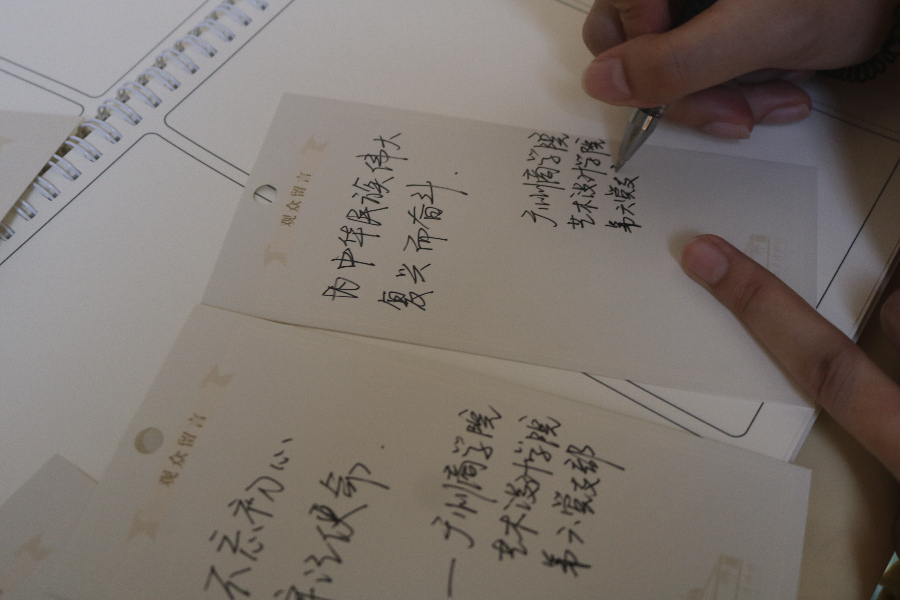 观众留言
为中华民族伟大
复兴而奋斗.
广州商学院
艺术设计学院
第六党支
观众留言
不忘初心
牢记使命.
一广州商学院
艺术设计学院
第六党支部